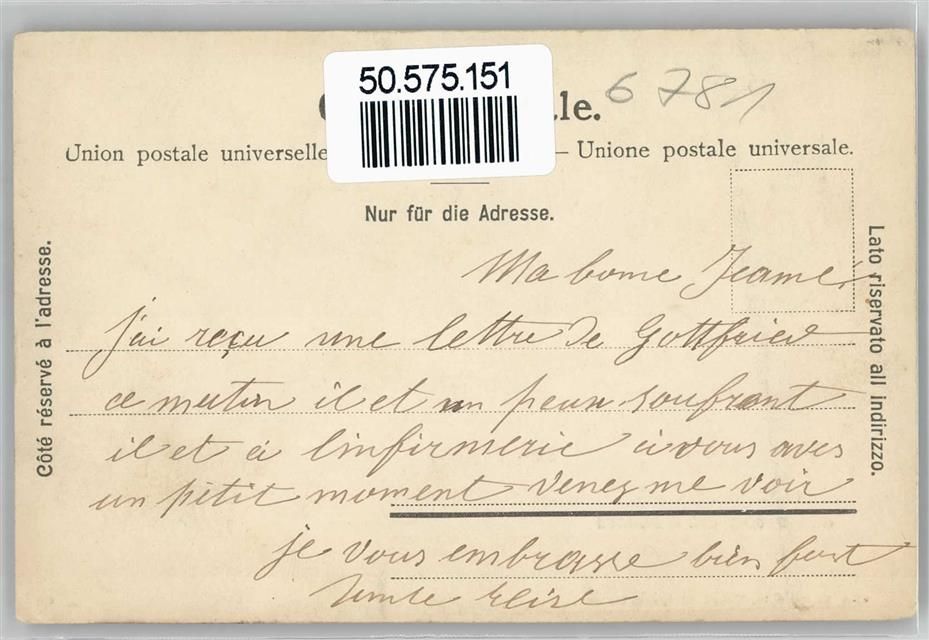 50.575.151
le. 6781
Union postale universelle — Unione postale universale.
Nur für die Adresse.
Côté réservé à l'adresse.
Lato riservato all indirizzo.
Ma bonne Jeanne
j'ai reçu une lettre de Gottfried
ce matin il et un peux soufrant
il et à linfirmerie si vous aves
un petit moment venez me voir
je vous embrasse bien fort